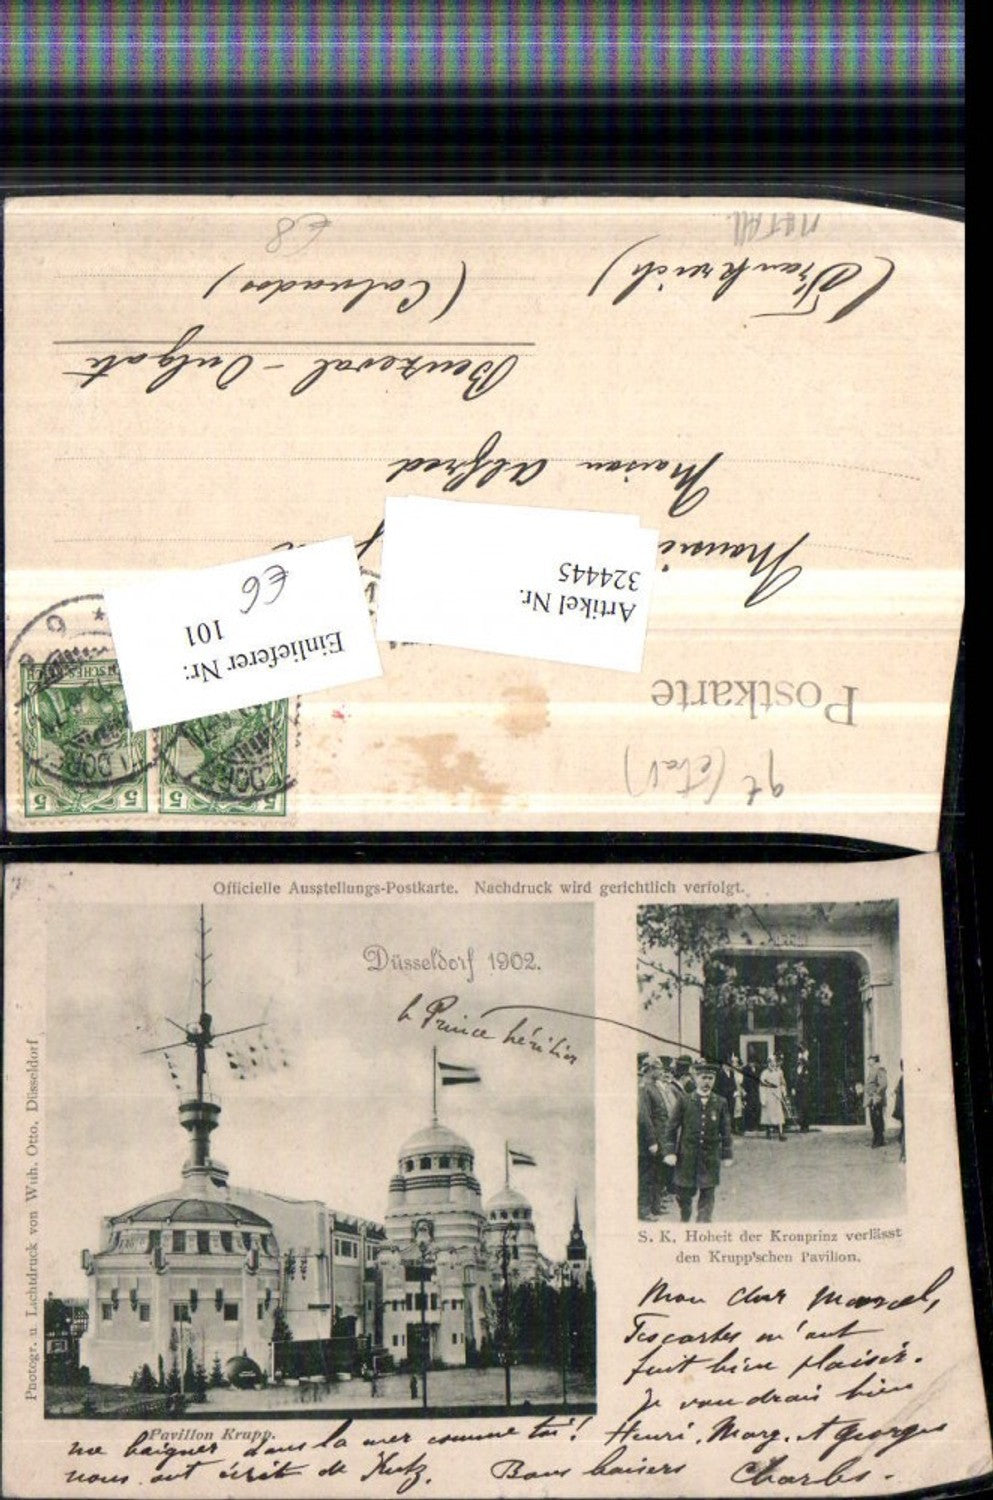 (Frankreich)
(Calvados)
Benzeval - Oulgate
Maison Alfred
Artikel Nr.
324445
Einlieferer Nr:
101
€6
€8
Postkarte
5
5
Officielle Ausstellungs-Postkarte. Nachdruck wird gerichtlich verfolgt.
Düsseldorf 1902.
le Prince héritier
Photogr. u. Lichtdruck von Wilh. Otto, Düsseldorf
Pavillon Krupp.
S. K. Hoheit der Kronprinz verlässt
den Krupp'schen Pavillon.
Mon cher Marcel,
Tes cartes m'ont
fait bien plaisir.
Je voudrais bien
me baigner dans la mer comme toi! Henri, Marg. et Georges
nous ont écrit de Bons baisers Charles.